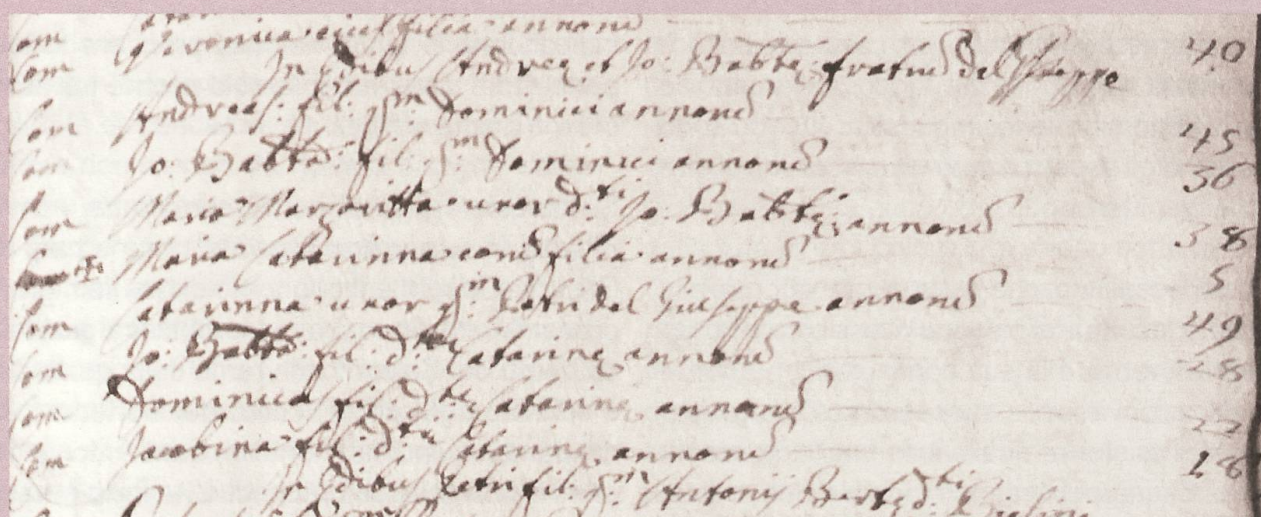 Com
Com Veronica eius filia annorū 40
In Ędibus Andreę et Jo: Babtę fratrū del Giseppe
Com Andreas: fil: qm Dominici annorū 45
Com Jo: Babta: fil: qm Dominici annorū 36
Com Maria Margaritta uxor dti Jo: Babtę: annorū 38
Maria Catarinna eorū filia annorū 5
Com Catarinna uxor qm Petri del Giuseppe annorū 49
Com Jo: Babta: fil: dtę Catarinę annorū 28
Com Dominicus fil: dtę Catarinę annorū 22
Com Jacobina fil: dtę Catarinę annorū 18
In Ędibus Petri fil: qm Antonij dti